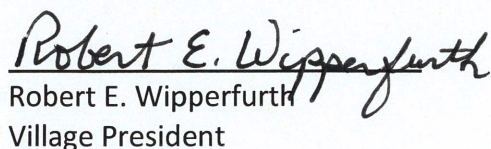 Robert E. Wipperfurth
Robert E. Wipperfurth
Village President